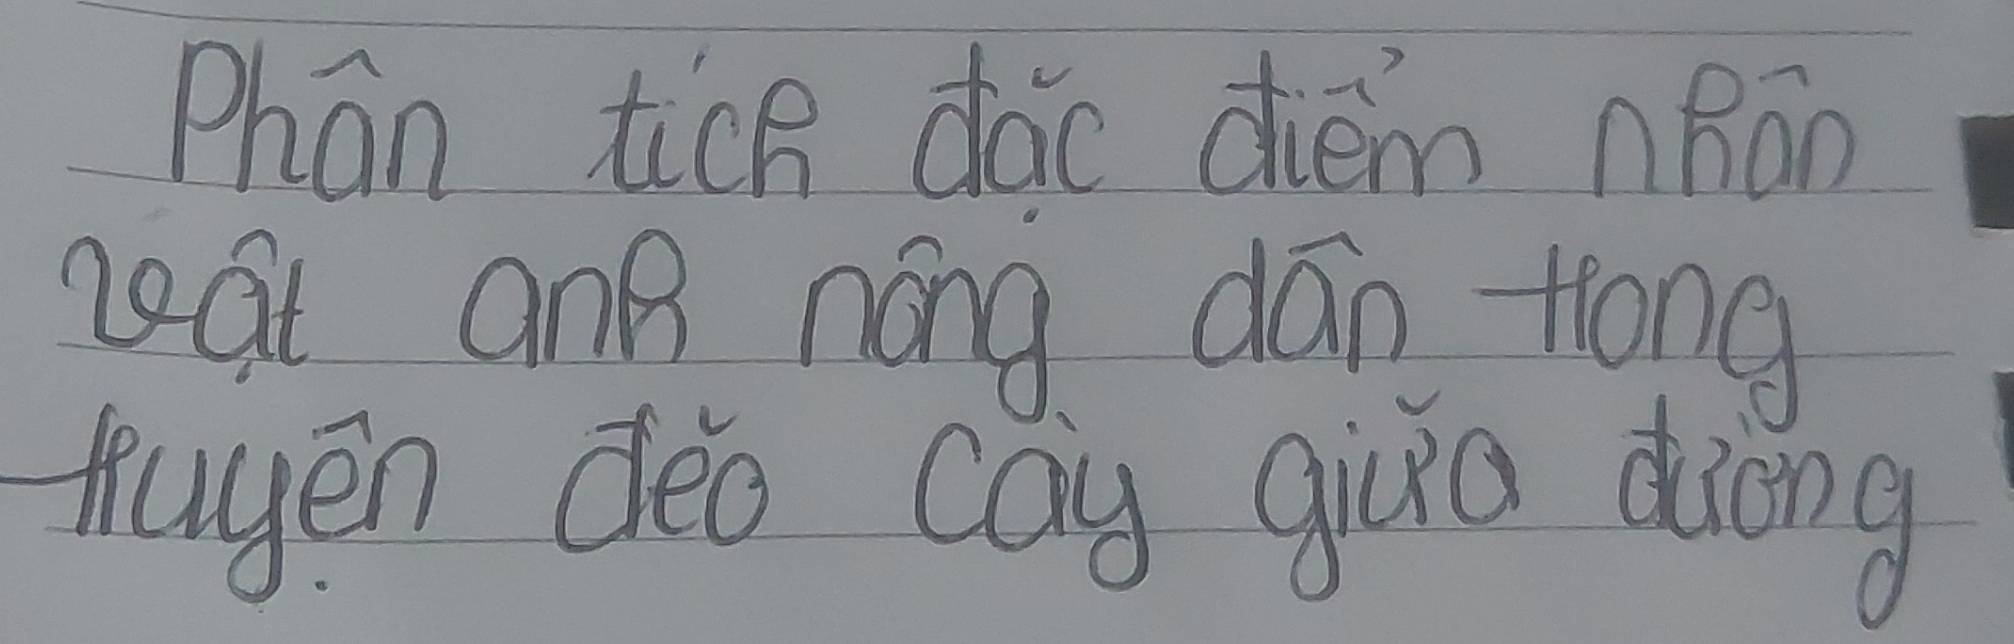 Phân tích đặc điểm nhân
vật anh nông dân trong
truyện đẽo cày giữa đường